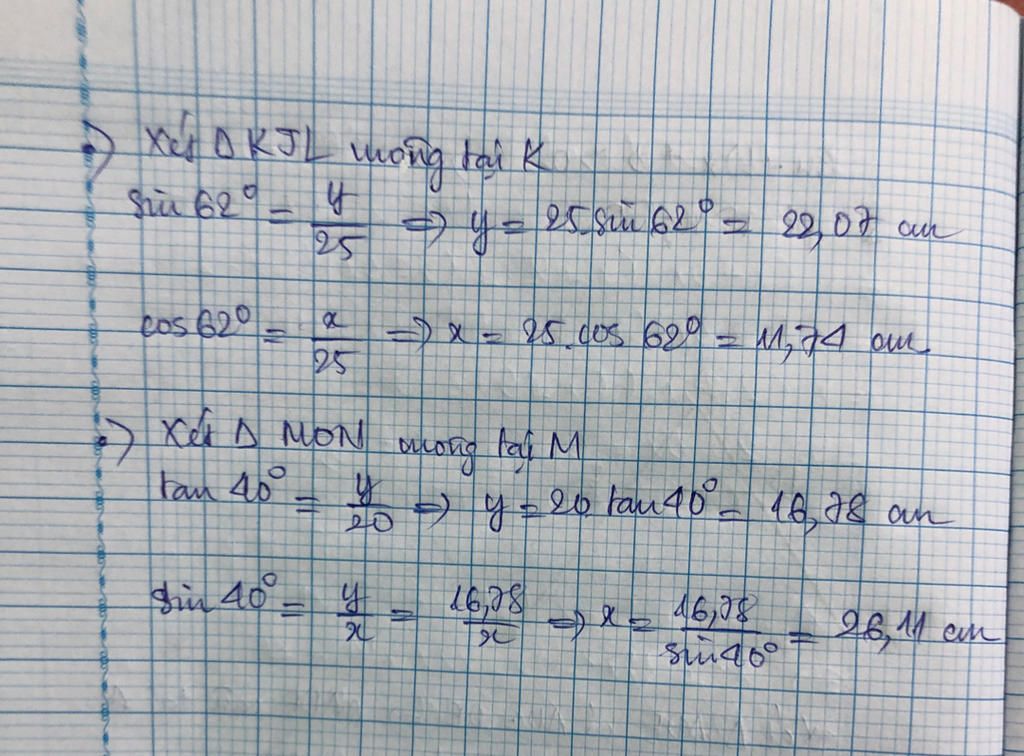 => Xét Δ KJL vuông tại K
sin 62° = y/25 => y = 25.sin 62° = 22,07 cm
cos 62° = x/25 => x = 25.cos 62° = 11,74 cm
=> Xét Δ MON vuông tại M
tan 40° = y/20 => y = 20.tan 40° = 16,78 cm
sin 40° = y/x = 16,78/x => x = 16,78/sin 40° = 26,11 cm